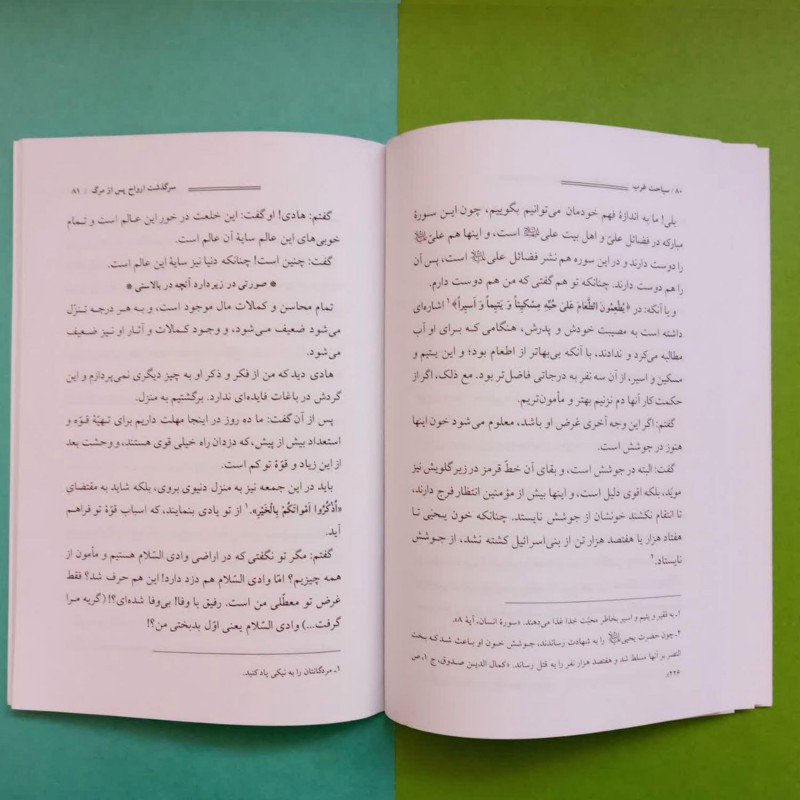 ۸۰ / سیاحت غرب
بلی! ما به اندازهٔ فهم خودمان می‌توانیم بگوییم، چون این سورهٔ
مبارکه در فضائل علی و اهل بیت علی است، و اینها هم علی
را دوست دارند و در این سوره هم نشر فضائل علی است، پس آن
را هم دوست دارند. چنانکه تو هم گفتی که من هم دوست دارم.
و با آنکه: در ﴿يُطْعِمُونَ الطَّعَامَ عَلَىٰ حُبِّهِ مِسْكِيناً وَ يَتِيماً وَ أَسِيراً﴾ ۱ اشاره‌ای
داشته است به مصیبت خودش و پدرش، هنگامی که برای او آب
مطالبه می‌کرد و ندادند، با آنکه بی‌بهاتر از اطعام بود؛ و این یتیم و
مسکین و اسیر، از آن سه نفر به درجاتی فاضل‌تر بود. مع ذلک، اگر از
حکمت کار آنها دم نزنیم بهتر و مأمون‌تریم.
گفتم: اگر این وجه آخری غرض او باشد، معلوم می‌شود خون اینها
هنوز در جوشش است.
گفت: البته در جوشش است، و بقای آن خطّ قرمز در زیر گلویش نیز
مویّد، بلکه اقوی دلیل است، و اینها بیش از مؤمنین انتظار فرج دارند،
تا انتقام نکشند خونشان از جوشش نایستد. چنانکه خون یحیی تا
هفتاد هزار یا هفتصد هزار تن از بنی‌اسرائیل کشته نشد، از جوشش
نایستاد.۲
۱ـ به فقیر و یتیم و اسیر بخاطر محبّت خدا غذا می‌دهند. «سورهٔ انسان، آیهٔ ۸».
۲ـ چون حضرت یحیی را به شهادت رساندند، جوشش خون او باعث شد که بخت
النصر بر آنها مسلط شد و هفتصد هزار نفر را به قتل رساند. «کمال الدین صدوق، ج ۱ـ ص
۲۲۶»
سرگذشت ارواح پس از مرگ / ۸۱
گفتم: هادی! او گفت: این خلعت در خور این عالم است و تمام
خوبی‌های این عالم سایهٔ آن عالم است.
گفت: چنین است! چنانکه دنیا نیز سایهٔ این عالم است.
* صورتی در زیر دارد آنچه در بالاستی *
تمام محاسن و کمالات مال موجود است، و به هر درجه تنزّل
می‌شود ضعیف می‌شود، و وجود کمالات و آثار او نیز ضعیف
می‌شود.
هادی دید که من از فکر و ذکر او به چیز دیگری نمی‌پردازم و این
گردش در باغات فایده‌ای ندارد. برگشتیم به منزل.
پس از آن گفت: ما ده روز در اینجا مهلت داریم برای تهیّهٔ قوّه و
استعداد بیش از پیش، که دزدان راه خیلی قوی هستند، و وحشت بعد
از این زیاد و قوّهٔ تو کم است.
باید در این جمعه نیز به منزل دنیوی بروی، بلکه شاید به مقتضایِ
«اُذْکُرُوا اَمْواتَکُمْ بِالْخَیْرِ».۱ از تو یادی بنمایند، که اسباب قوّهٔ تو فراهم
آید.
گفتم: مگر تو نگفتی که در اراضی وادی السّلام هستیم و مأمون از
همه چیزیم؟ امّا وادی السّلام هم دزد دارد! این هم حرف شد؟ فقط
غرض تو معطّلی من است. رفیق با وفا! بی‌وفا شده‌ای؟! (گریه مرا
گرفت...) وادی السّلام یعنی اوّل بدبختی من؟!
۱ـ مردگانتان را به نیکی یاد کنید.